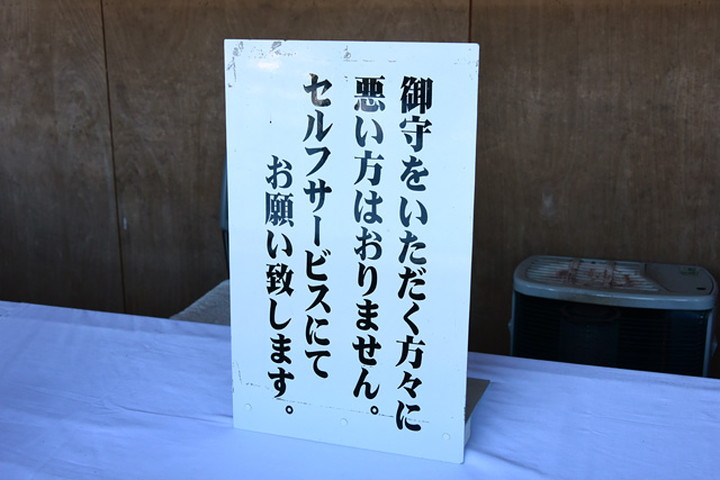 御守をいただく方々に
悪い方はおりません。
セルフサービスにて
お願い致します。